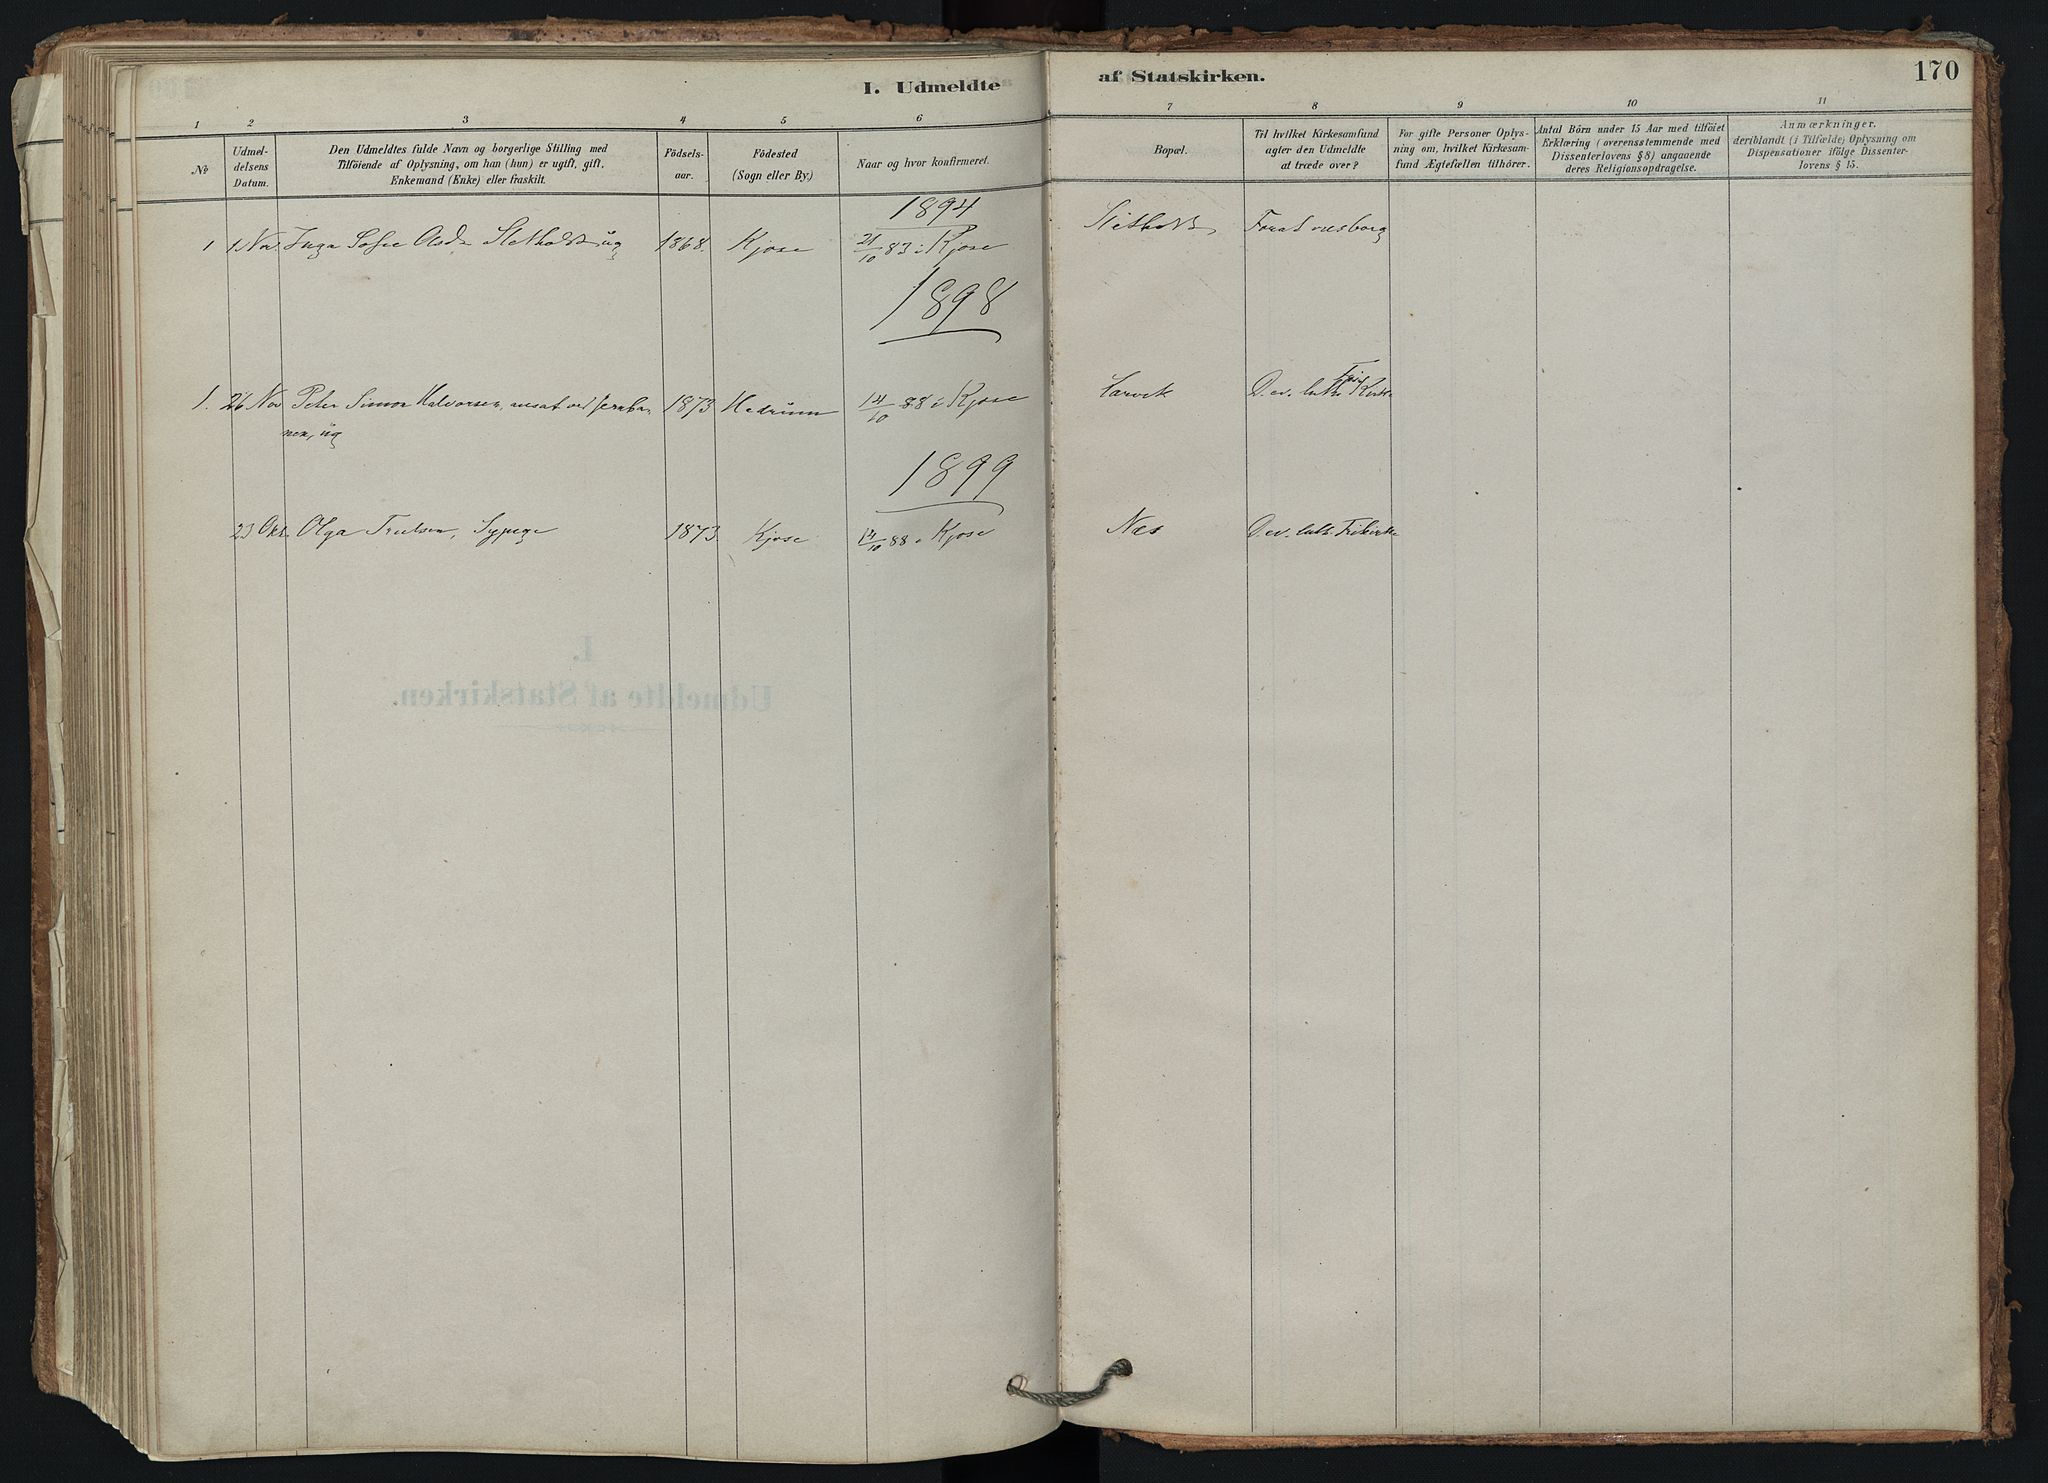 I. Udmeldte af Statskirken. 170
1 2 3 4 5 6 7 8 9 10 11
№
Udmel-
delsens
Datum.
Den Udmeldtes fulde Navn og borgerlige Stilling med
Tilföiende af Oplysning, om han (hun) er ugift, gift,
Enkemand (Enke) eller fraskilt.
Födsels-
aar.
Födested
(Sogn eller By.)
Naar og hvor konfirmeret.
Bopæl.
Til hvilket Kirkesamfund
agter den Udmeldte
at træde over?
For gifte Personer Oplys-
ning om, hvilket Kirkesam-
fund Ægtefællen tilhörer.
Antal Börn under 15 Aar med tilföiet
Erklæring (overensstemmende med
Dissenterlovens § 8) angaaende
deres Religionsopdragelse.
Anmærkninger,
deriblandt (i Tilfælde) Oplysning om
Dispensationer ifölge Dissenter-
lovens § 15.
1894
1 1 Nov. Inga Sofie Slethold ug 1868. Kjose 21/10 83 i Kjose Slethold,
1898
1. 26 Nov Peter Simon Halvorsen, ansat ved Jernba- 1873 Hedrum 14/10 88 i Kjose Larvik D. ev. luth. Fri Kirke
nen, ug
1899
23 Okt. Olga Truelsen, Sypige 1873 Kjose 14/10 88 i Kjose Næs D. ev. luth. Frikirke
I.
Udmeldte af Statskirken.